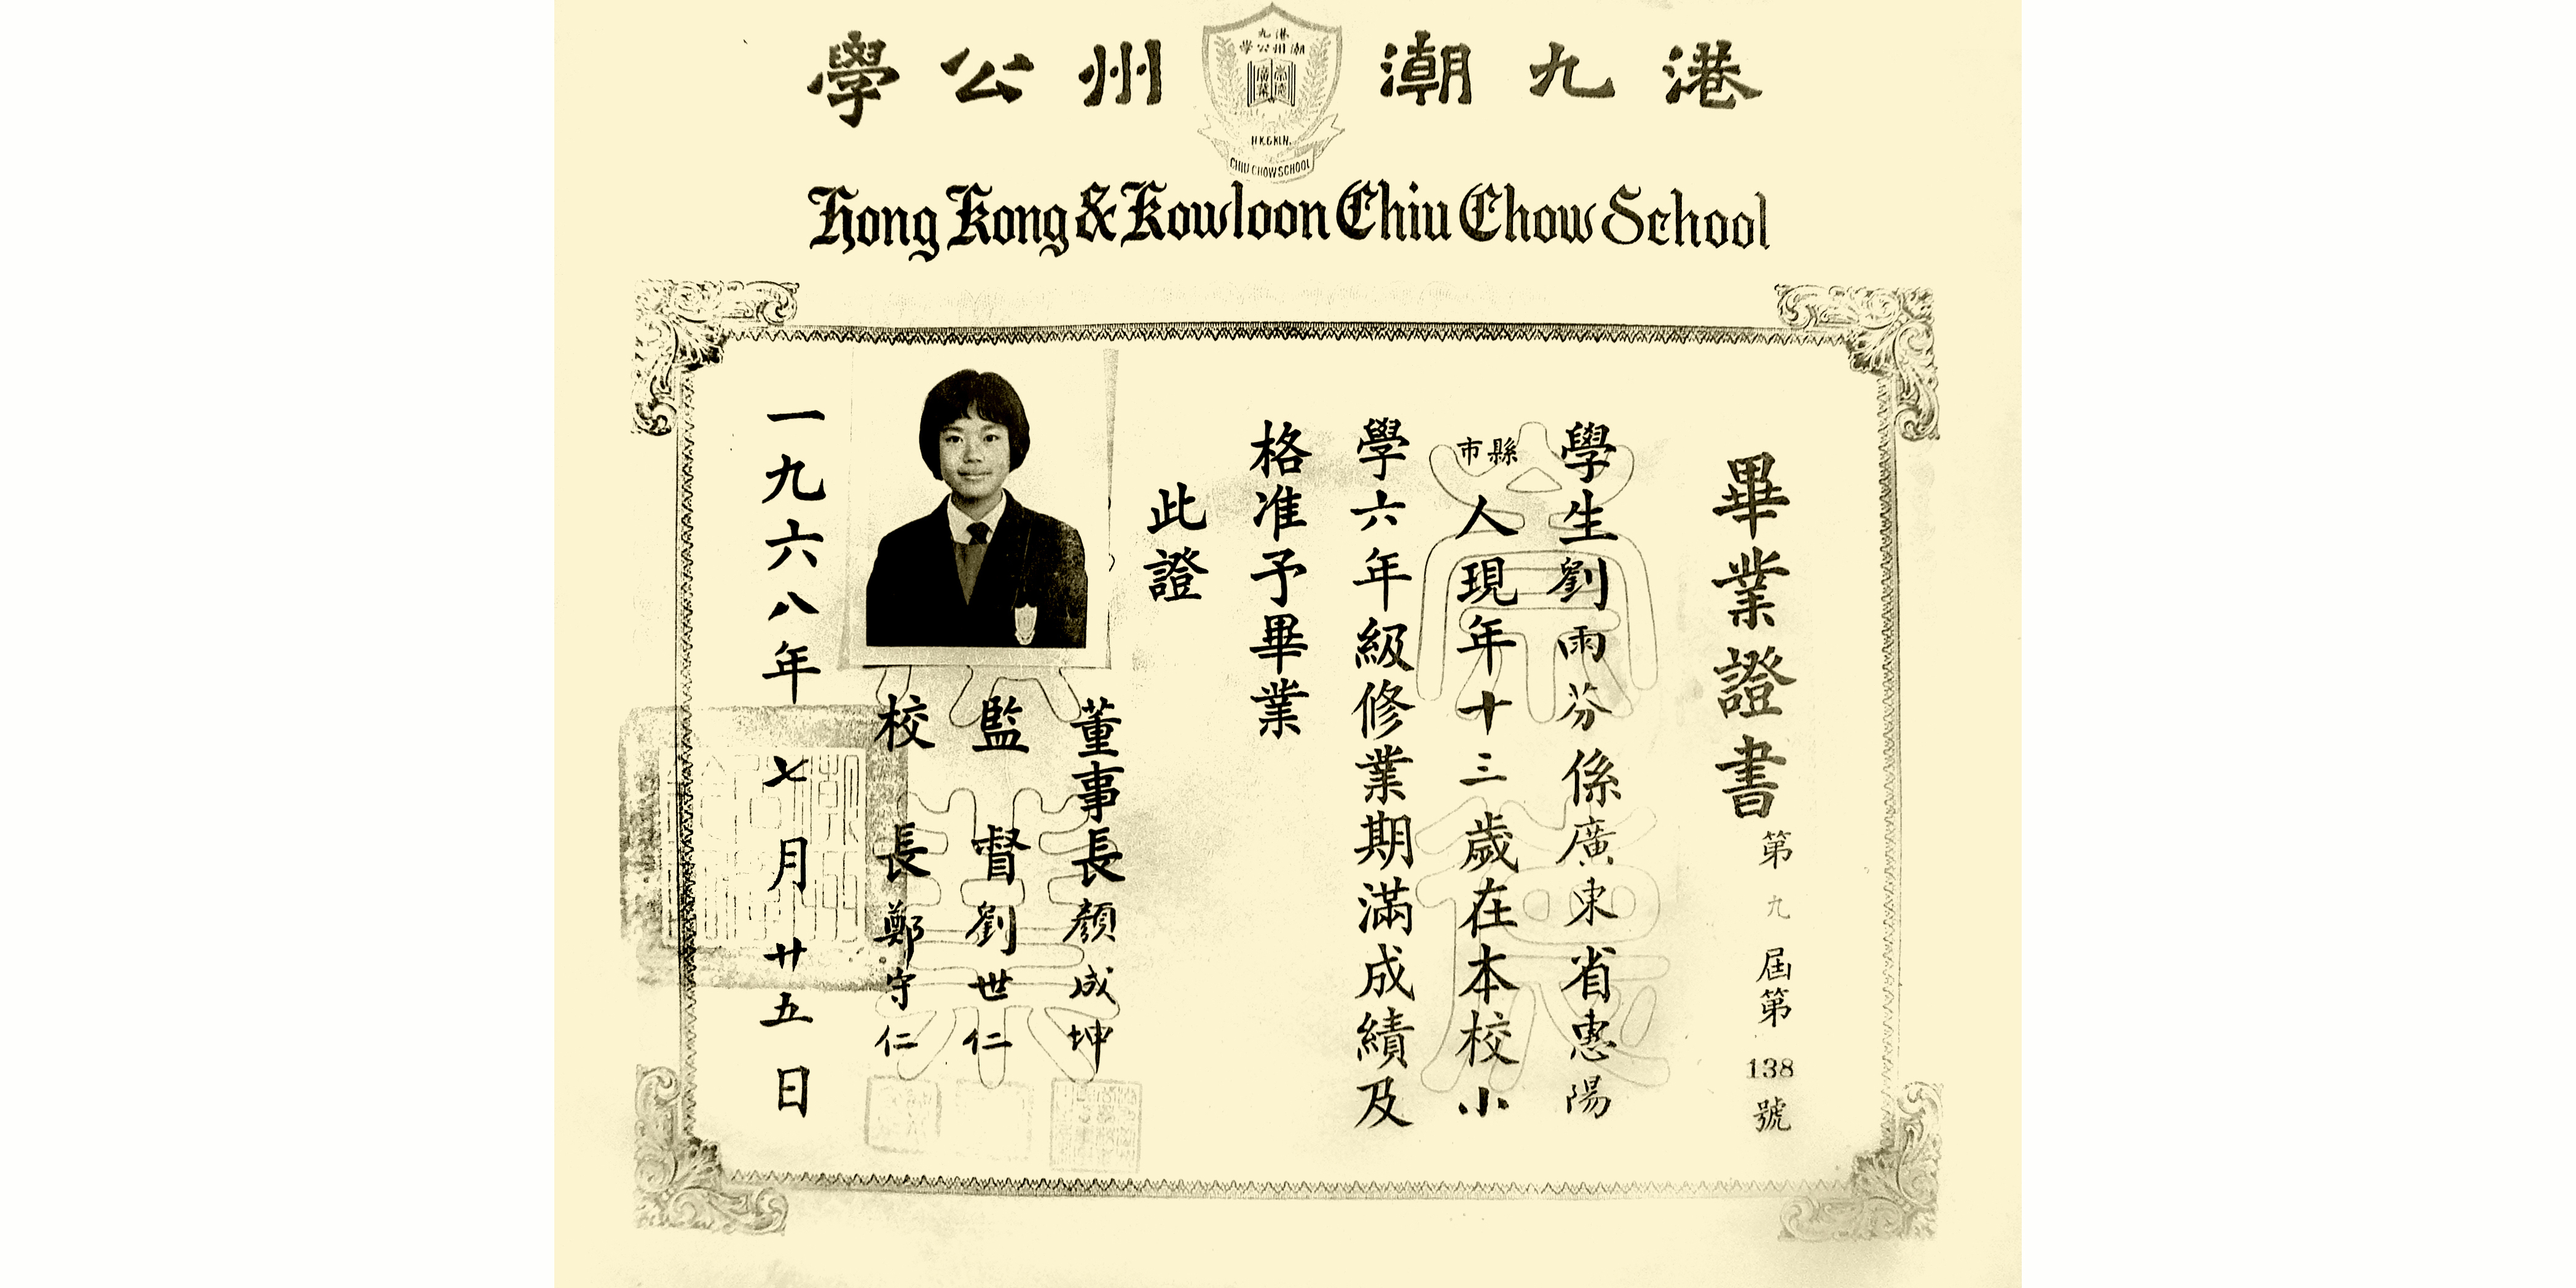 港九潮州公學
港九
潮州公學
H.K.&KLN.
CHIU CHOW SCHOOL
Hong Kong & Kowloon Chiu Chow School
畢業證書
第九屆第138號
學生劉雨芬係廣東省惠陽
縣市人現年十三歲在本校小
學六年級修業期滿成績及
格准予畢業
此證
董事長顏成坤
監督劉世仁
校長鄭守仁
一九六八年七月廿五日